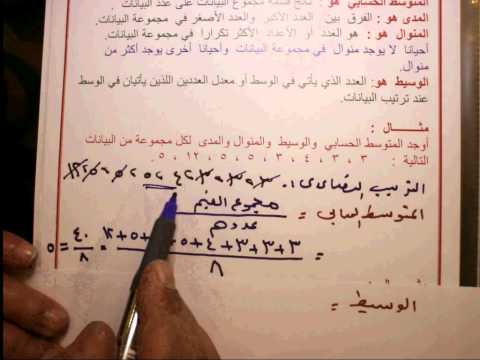 المتوسط الحسابي هو: ناتج قسمة مجموع البيانات على عدد البيانات
المدى هو: الفرق بين العدد الأكبر والعدد الأصغر في مجموعة البيانات.
المنوال هو: هو العدد أو الأعداد الأكثر تكرارا في مجموعة البيانات.
أحيانا لا يوجد منوال في مجموعة البيانات وأحيانا أخرى يوجد أكثر من
منوال.
الوسيط هو: العدد الذي يأتي في الوسط أو معدل العددين اللذين يأتيان في الوسط
عند ترتيب البيانات.
مثال :
أوجد المتوسط الحسابي والوسيط والمنوال والمدى لكل مجموعة من البيانات
التالية : ٣ ، ٣ ، ٤ ، ٣ ، ٥ ، ٥ ، ١٢ ، ٥
الترتيب التصاعدي : ٣ ، ٣ ، ٣ ، ٤ ، ٥ ، ٥ ، ٥ ، ١٢
المتوسط الحسابي = مجموع القيم
عددهم
= ٣+٣+٣+٤+٥+ +٥+١٢ = ٤٠ = ٥
٨ ٨
الوسيط =